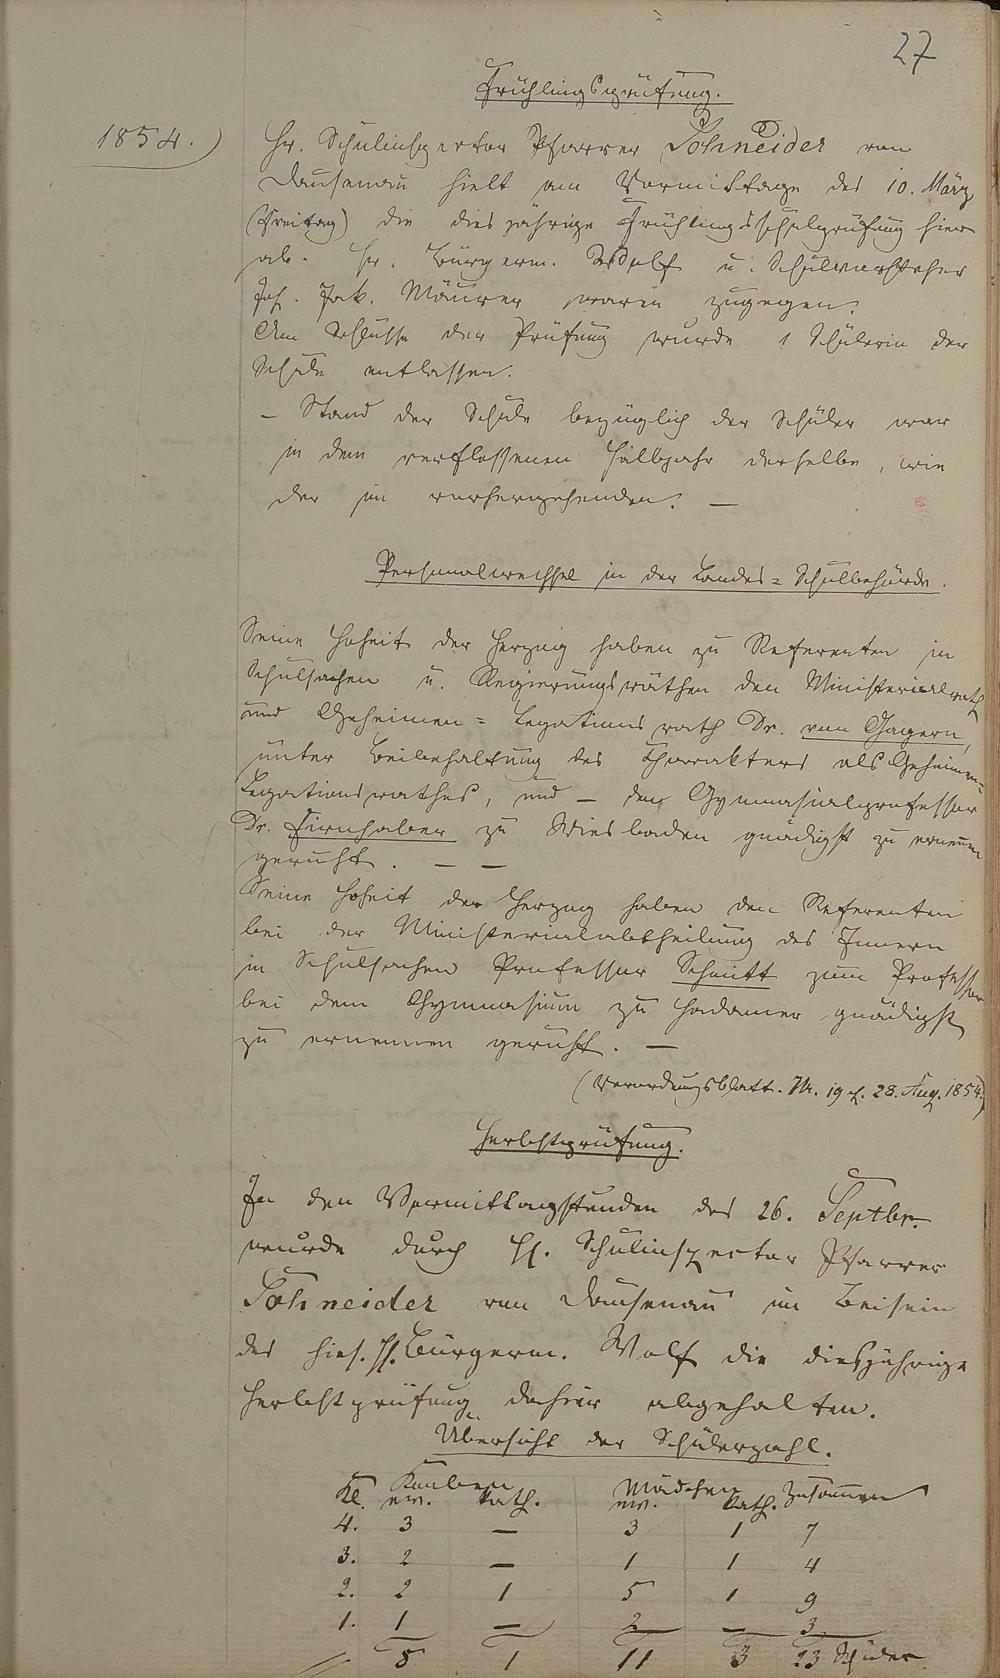 27
Frühlingsprüfung.
1854.)
Hr. Schulinspector Pfarrer Schneider von
Dausenau hielt am Vormittage des 10. März
(Freitag) die diesjährige Frühlingsschulprüfung hier
ab. Hr. Bürgerm. Wolf u. Schulvorsteher
Joh. Jak. Mäurer waren zugegen.
Am Schlusse der Prüfung wurde 1 Schülerin der
Schule entlassen.
– Stand der Schule bezüglich der Schüler war
in dem verflossenen Halbjahr derselbe, wie
der im vorhergehenden. –
Personalwechsel in der Landes-Schulbehörde.
Seine Hoheit der Herzog haben zu Referenten in
Schulsachen u. Regierungsräthen den Ministerialrath
und Geheimen-Legationsrath Dr. von Gagern,
unter Beibehaltung des Charakters als Geheimen-
Legationsrathes, und – den Gymnasialprofessor
Dr. Firnhaber zu Wiesbaden gnädigst zu ernennen
geruht. – –
Seine Hoheit der Herzog haben den Referenten
bei der Ministerialabtheilung des Innern
in Schulsachen Professor Schmitt zum Professor
bei dem Gymnasium zu Hadamar gnädigst
zu ernennen geruht. –
(Verordnungsblatt. Nr. 19 28. Aug. 1854)
Herbstprüfung.
In den Vormittagstunden des 26. Septbr.
wurde durch H. Schulinspector Pfarrer
Schneider von Dausenau im Beisein
des hies. H. Bürgerm. Wolf die diesjährige
Herbstprüfung dahier abgehalten.
Übersicht der Schülerzahl.
Knaben Mädchen
Kl. ev. kath. ev. kath. Zusammen
4. 3 – 3 1 7
3. 2 – 1 1 4
2. 2 1 5 1 9
1. 1 – 2 – 3
8 1 11 3 23 Schüler